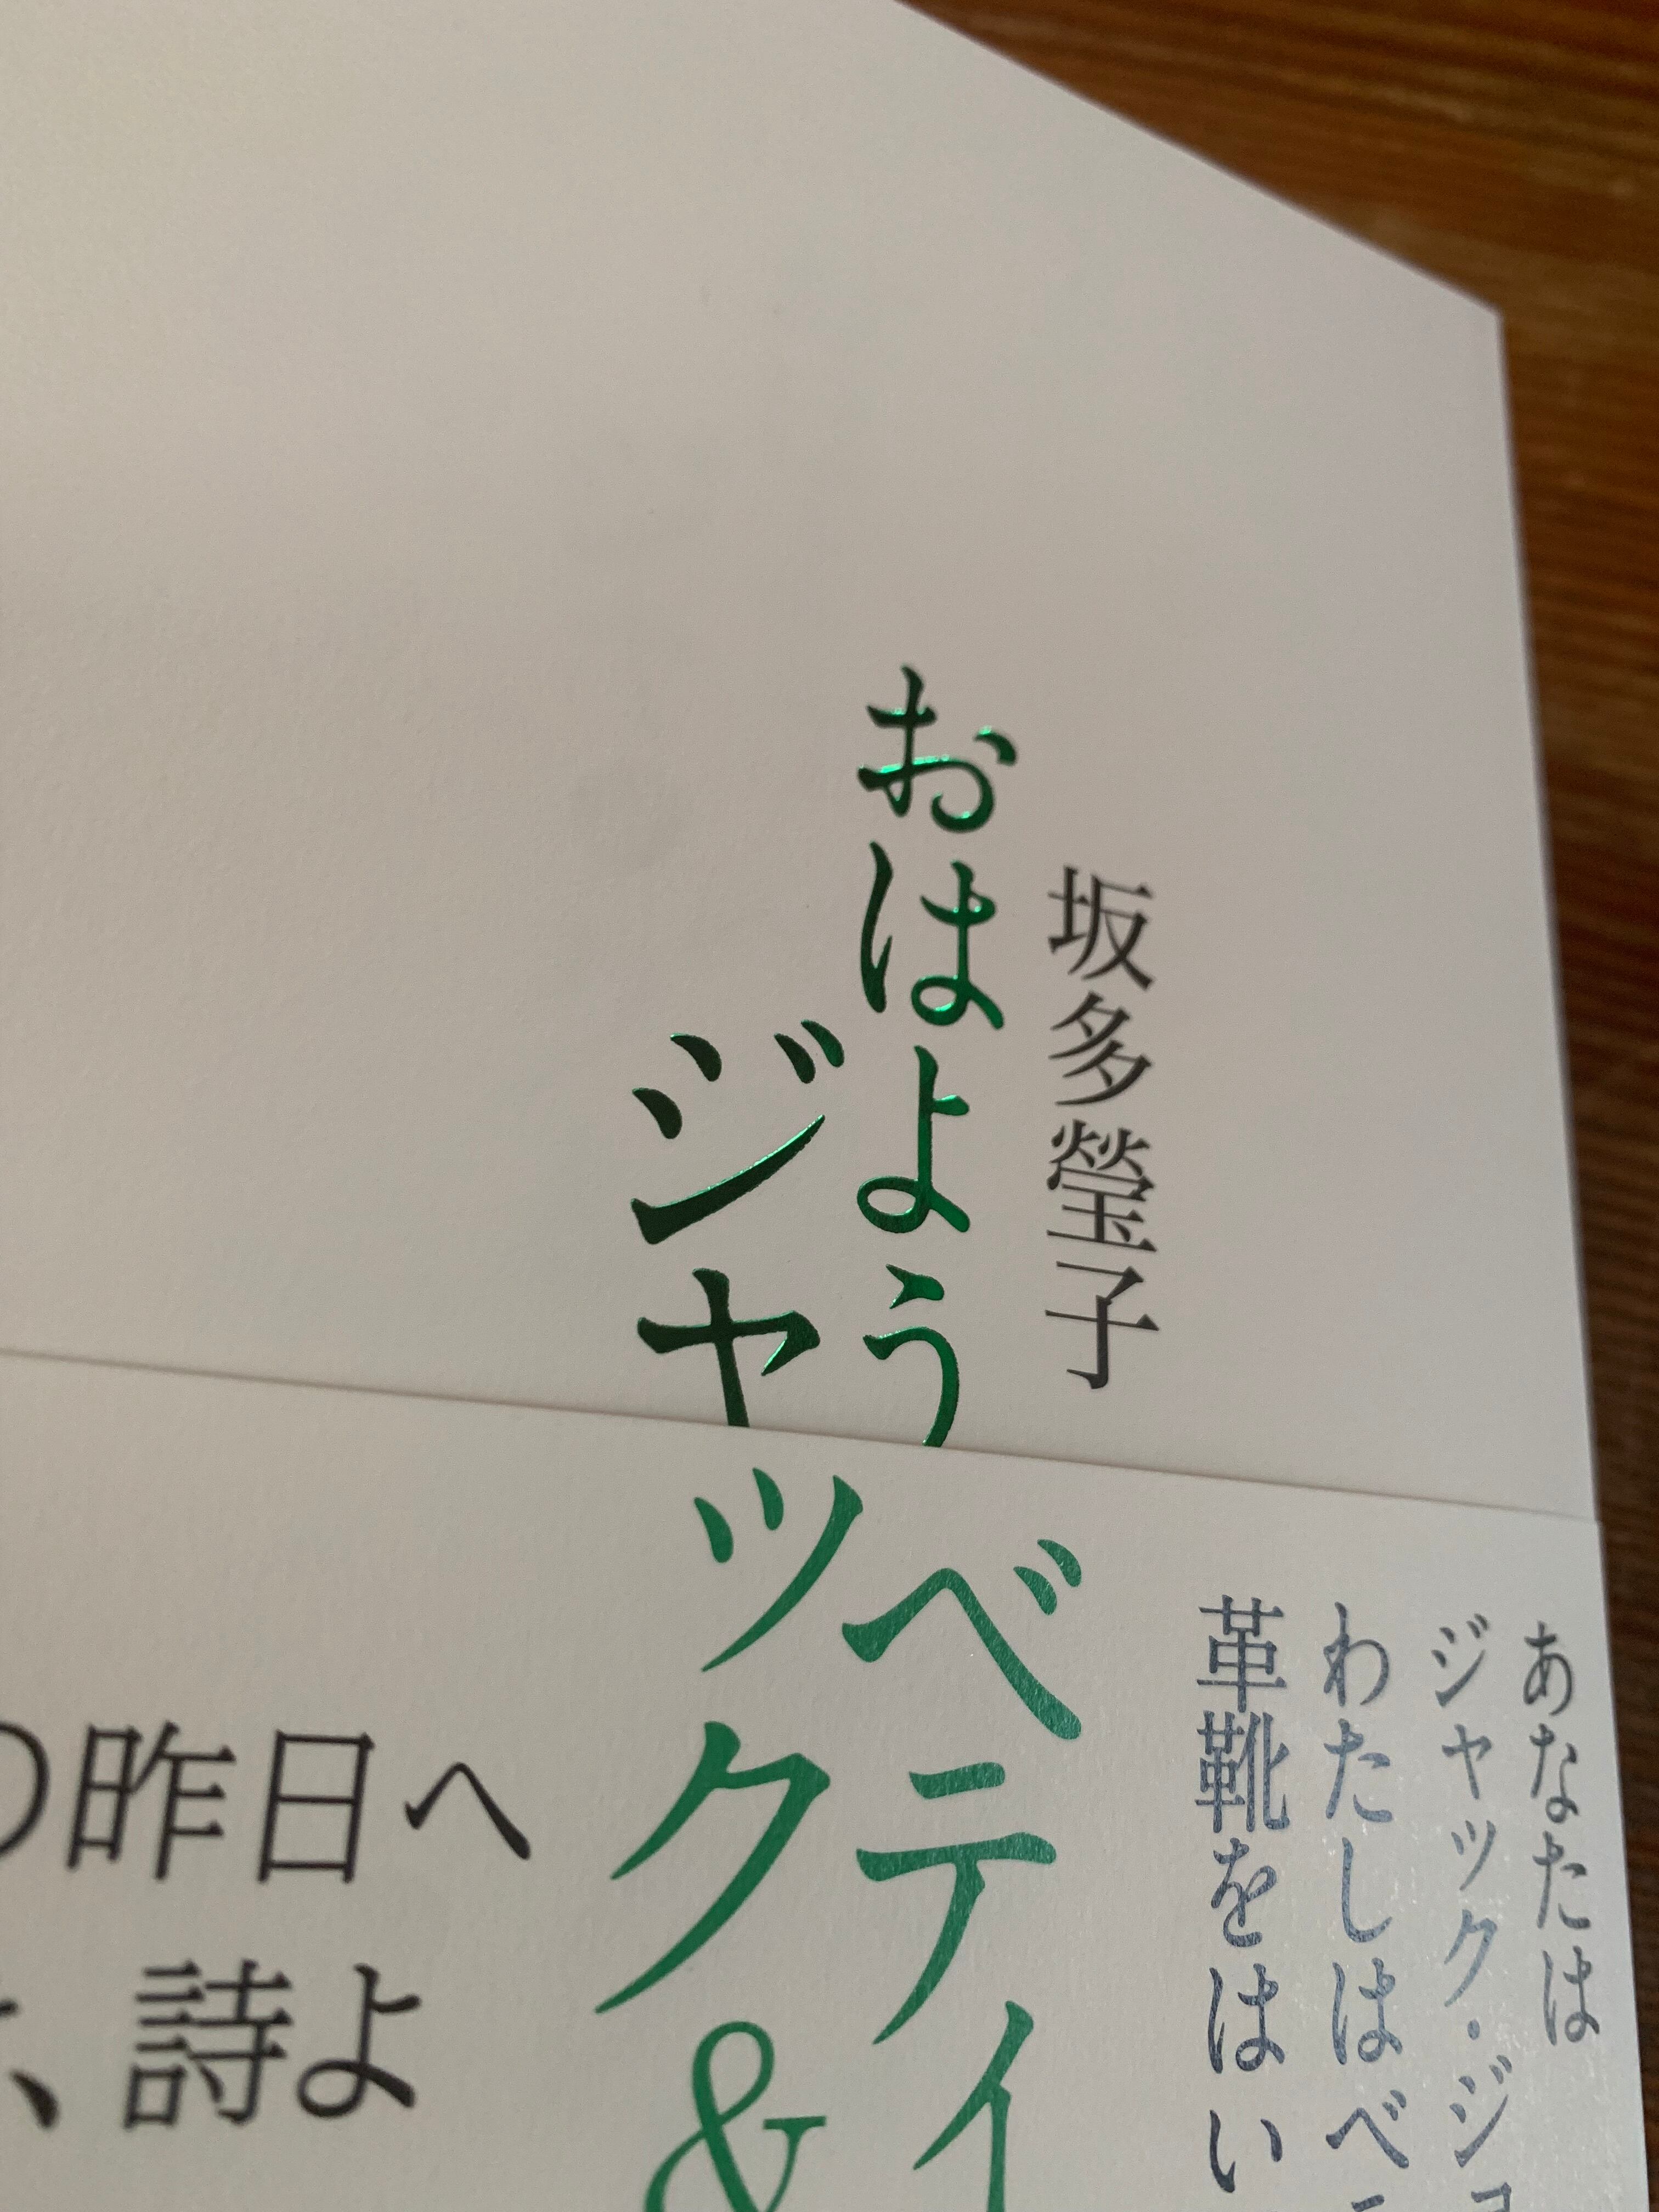 坂多瑩子
おはよう
ジャック&
ベティ
あなたは
ジャック・ジョ
わたしはベ
革靴をはい
の昨日へ
、詩よ